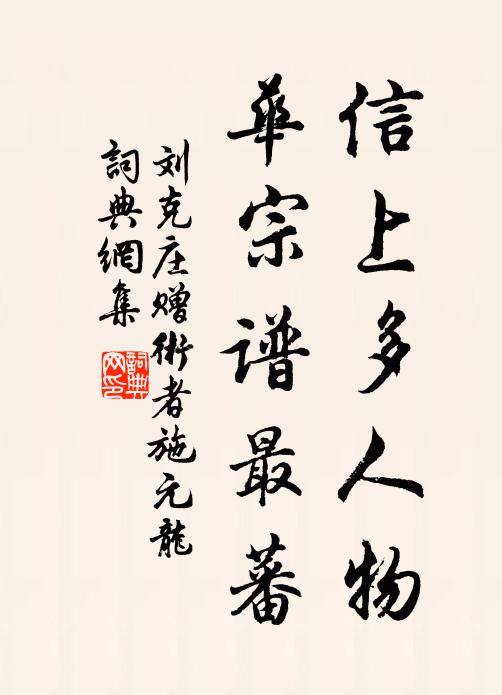 信上多人物
華宗谱最蕃
刘克庄赠術者施元龍
詞典網集
詞典网印